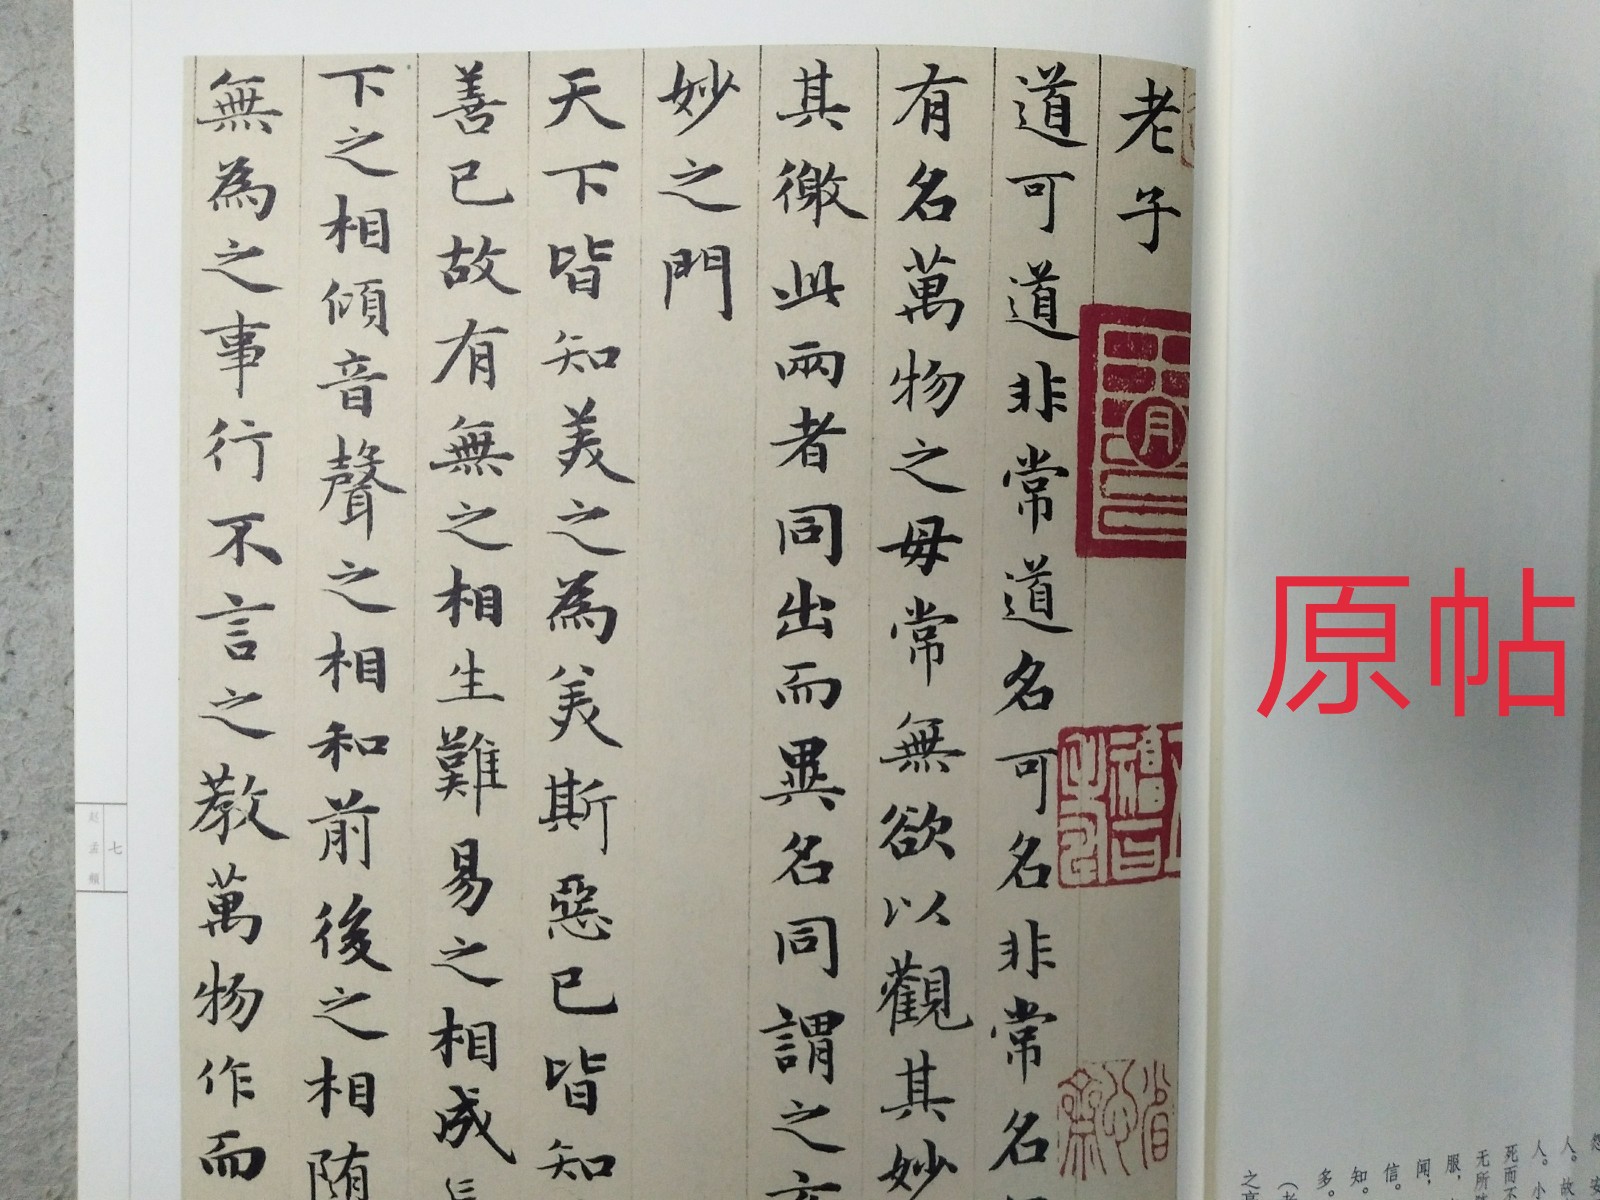 原帖
安
人。故
人。小
死而不
无所
服，
闻，
信。
知。
多。
之
老子
道可道非常道名可名非常名
有名萬物之母常無欲以觀其妙
其徼此兩者同出而異名同謂之玄
妙之門
天下皆知美之為美斯惡已皆知
善已故有無之相生難易之相成長
下之相傾音聲之相和前後之相随
無為之事行不言之教萬物作而
七
赵孟頫